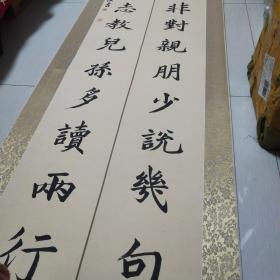 非對親朋少說幾句
志教兒孫多讀兩行